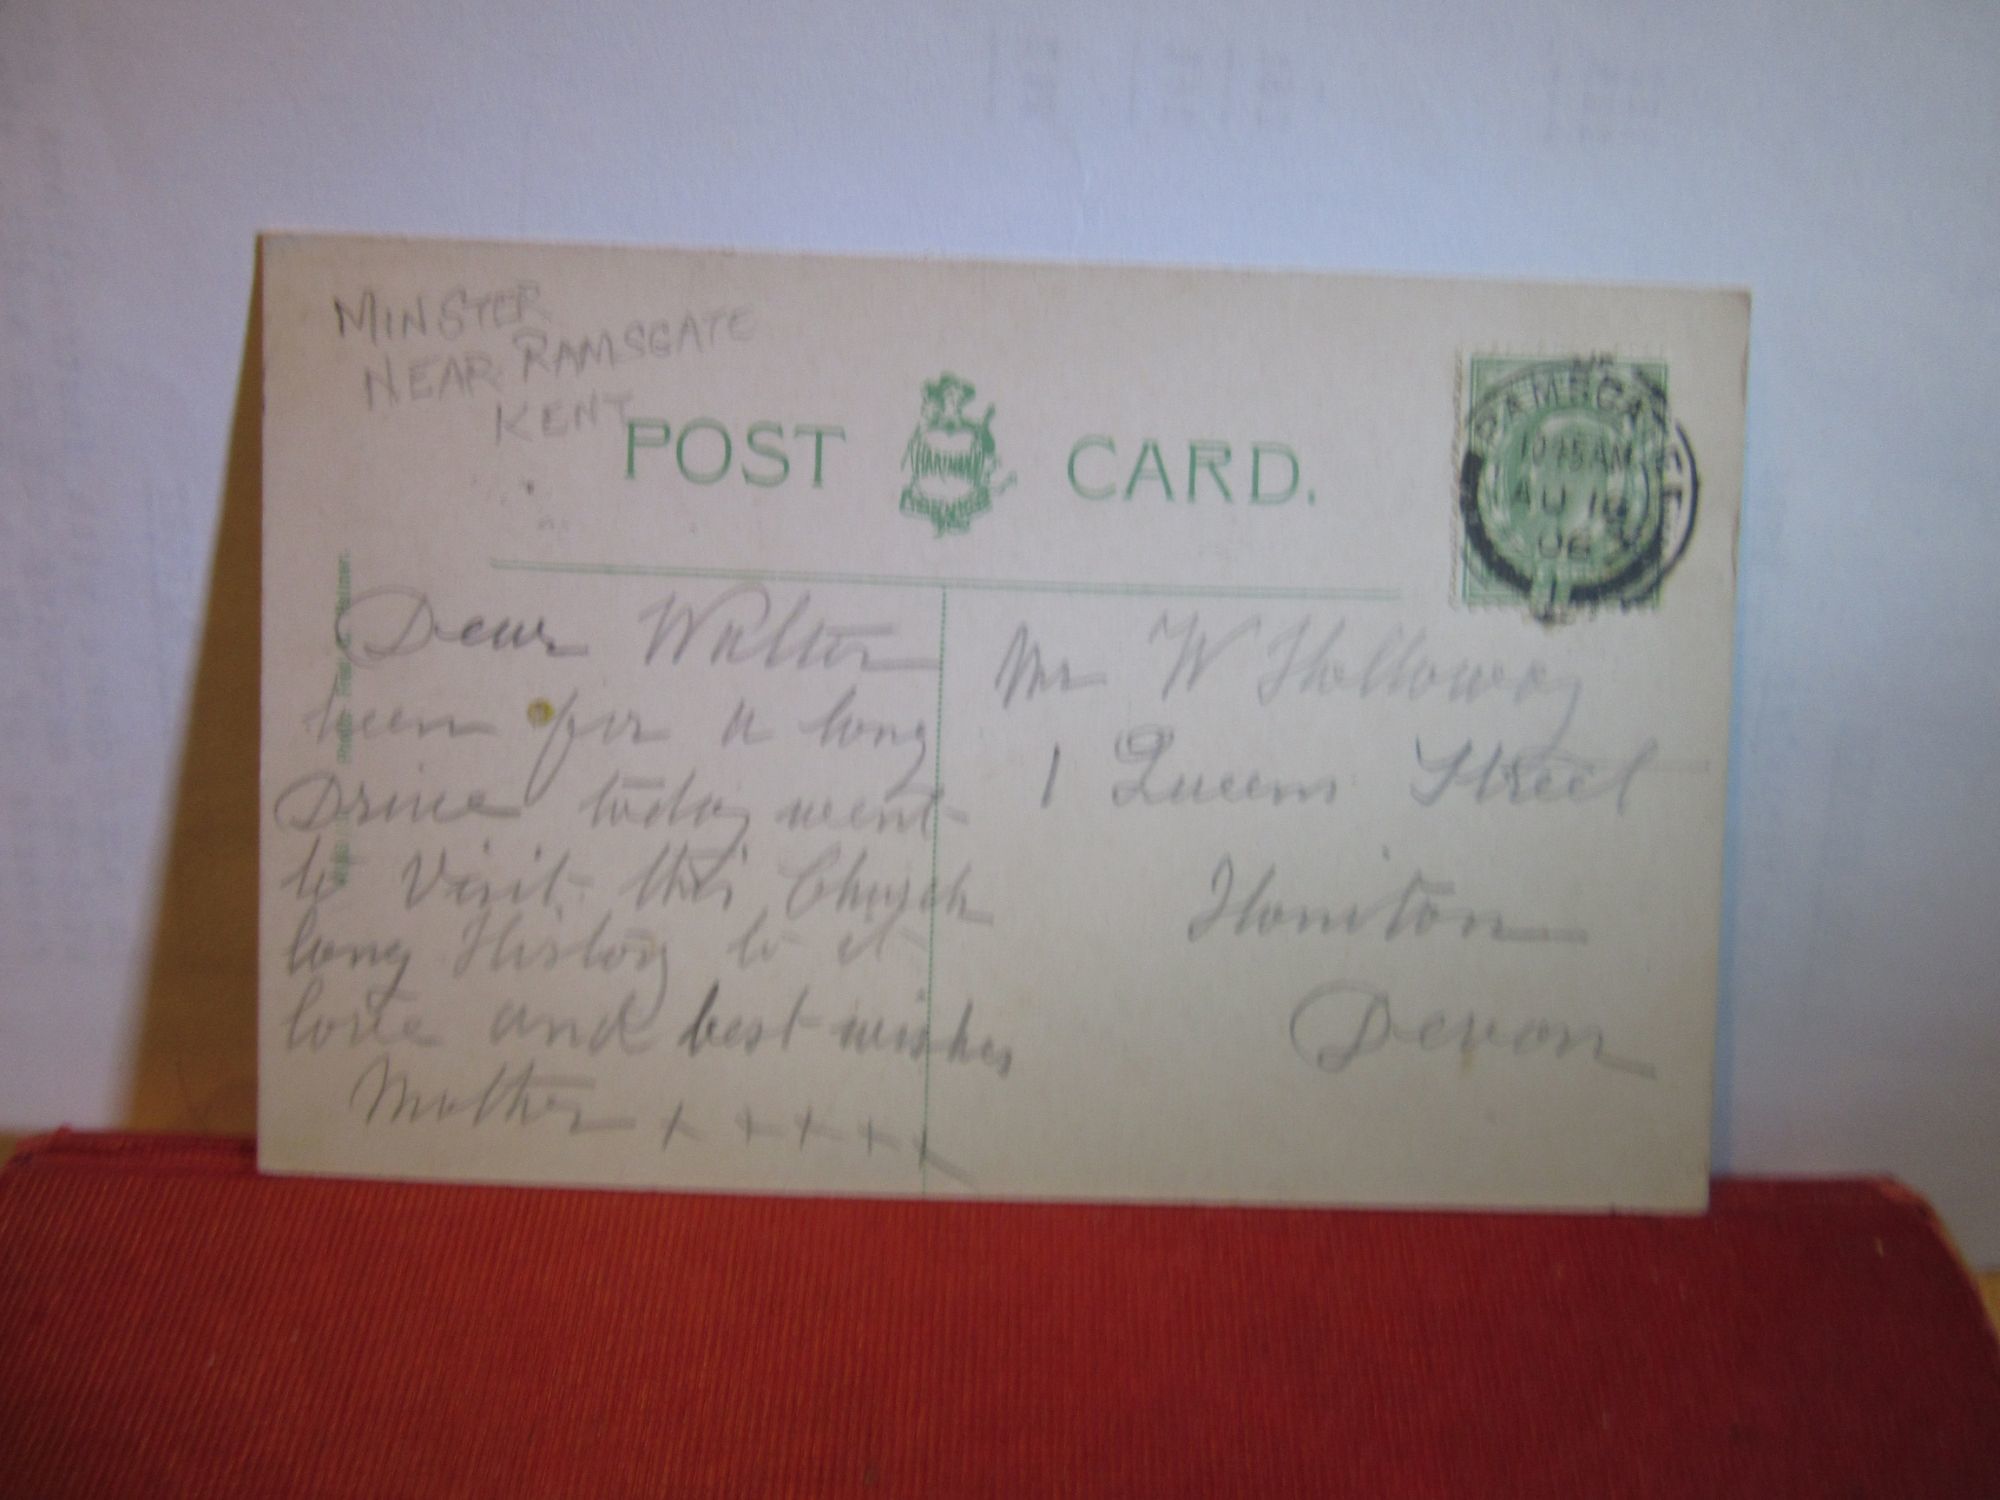 MINSTER
NEAR RAMSGATE
KENT
POST CARD.
HARTMANN
RAMSGATE
10 45 AM
AU 19
06
1
Dear Walter
been for a long
Drive today went
to Visit this Church
long History to it
love and best wishes
Mother x x x x x
Mr W Holloway
1 Queens Street
Honiton
Devon